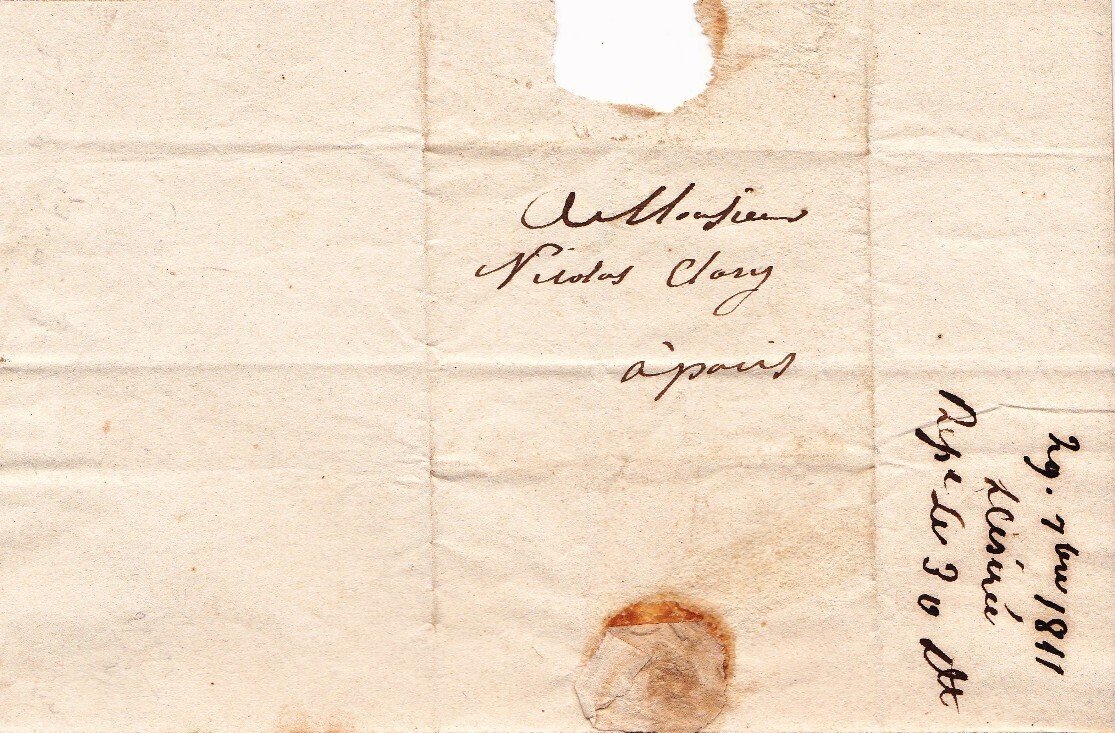 A Monsieur
Nicolas Clary
à paris
29. 7bre 1811
Désirée
Rep. le 30 dt